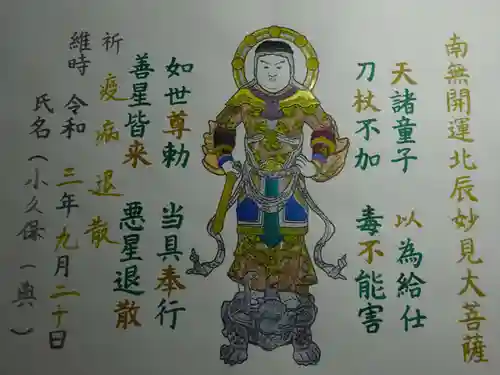 南無開運北辰妙見大菩薩
天諸童子 以為給仕
刀杖不加 毒不能害
如世尊勅 当具奉行
善星皆来 悪星退散
祈 疫病退散
維時 令和 三年九月二十日
氏名(小久保(典)